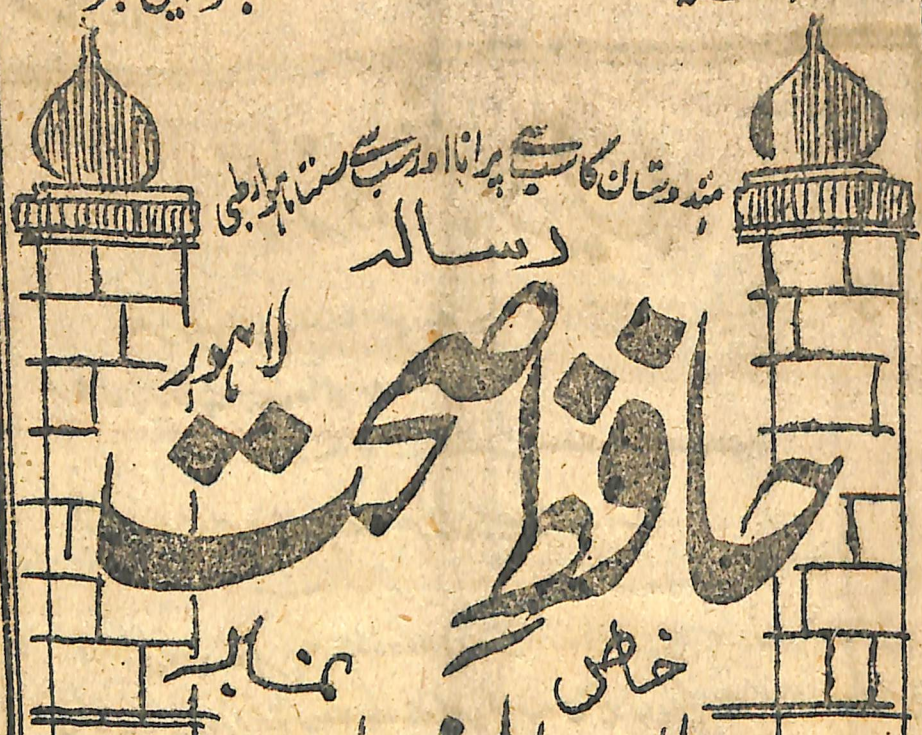 ہندوستان کا سب سے پرانا اور سب سے سستا ماہوار طبی
رسالہ
حافظِ صحت
لاہور
خاص نمبر